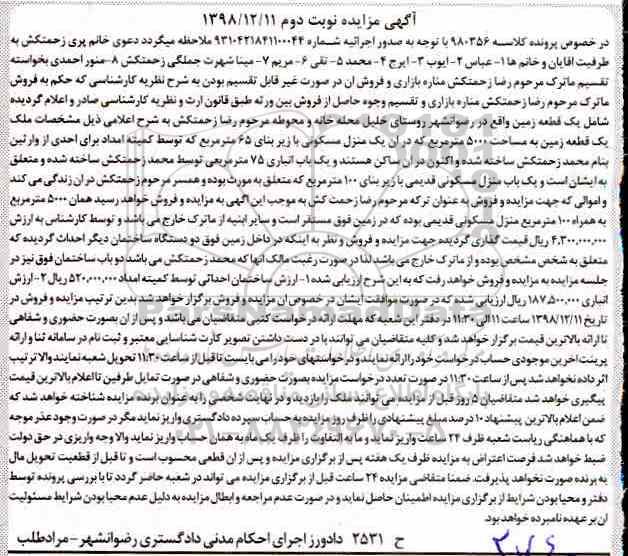 آگهی مزایده نوبت دوم ۱۳۹۸/۱۲/۱۱
در خصوص پرونده کلاسه ۹۸۰۳۵۶ با توجه به صدور اجرائیه شماره ۹۳۱۰۴۲۱۸۴۱۱۰۰۰۴۴ ملاحظه میگردد دعوی خانم پری زحمتکش به
ظرفیت اقایان و خانم ها ۱- عباس ۲- ایوب ۳- ایرج ۴- محمد ۵- تقی ۶- مریم ۷- مینا شهرت جملگی زحمتکش ۸- منور احمدی بخواسته
تقسیم ماترک مرحوم رضا زحمتکش مناره بازاری و فروش ان در صورت غیر قابل تقسیم بودن به شرح نظریه کارشناسی که حکم به فروش
ماترک مرحوم رضا زحمتکش مناره بازاری و تقسیم وجوه حاصل از فروش بین ورثه طبق قانون ارث و نظریه کارشناسی صادر و اعلام گردیده
شامل یک قطعه زمین واقع در رضوانشهر روستای خلیل محله خانه و محوطه مرحوم رضا زحمتکش به شرح اعلامی ذیل مشخصات ملک
یک قطعه زمین به مساحت ۵۰۰۰ مترمربع که در آن یک منزل مسکونی با زیر بنای ۶۵ مترمربع که توسط کمیته امداد برای احدی از وارثین
بنام محمد زحمتکش ساخته شده و اکنون در آن ساکن هستند و یک باب انباری ۷۵ مترمربعی توسط محمد زحمتکش ساخته شده و متعلق
به ایشان است و یک باب منزل مسکونی قدیمی با زیر بنای ۱۰۰ مترمربع که متعلق به مورث بوده و همسر مرحوم زحمتکش در ان زندگی می کند
و اموالی که جهت مزایده و فروش به عنوان ترکه مرحوم رضا زحمت کش به موجب این آگهی به مزایده و فروش خواهد رسید همان ۵۰۰۰ مترمربع
به همراه ۱۰۰ مترمربع منزل مسکونی قدیمی بوده که در زمین فوق مستقر است و سایر ابنیه از ماترک خارج می باشد و توسط کارشناس به ارزش
۴,۳۰۰,۰۰۰,۰۰۰ ریال قیمت گذاری گردیده جهت مزایده و فروش و نظر به اینکه در داخل زمین فوق دو دستگاه ساختمان دیگر احداث گردیده که
متعلق به شخص مشخص بوده و از ماترک خارج می باشد لذا در صورت رغبت مالک آنها که محمد زحمتکش می باشد دو باب ساختمان فوق نیز در
جلسه مزایده به مزایده و فروش خواهد رفت که به این شرح ارزیابی شده ۱- ارزش ساختمان احداثی توسط کمیته امداد ۵۲۰,۰۰۰,۰۰۰ ریال ۲- ارزش
انباری ۱۸۷,۵۰۰,۰۰۰ ریال ارزیابی شده که در صورت موافقت ایشان در خصوص ان مزایده و فروش برگزار خواهد شد بدین ترتیب مزایده و فروش در
تاریخ ۱۳۹۸/۱۲/۱۱ ساعت ۱۱ الی ۱۱:۳۰ در دفتر این شعبه که مهلت ارائه درخواست کتبی متقاضیان می باشد و پس از ان بصورت حضوری و شفاهی
تا ارائه بالاترین قیمت برگزار خواهد شد و کلیه متقاضیان می توانند با در دست داشتن تصویر کارت شناسایی معتبر و ثبت نام در سامانه ثنا و ارائه
پرینت اخرین موجودی حساب درخواست خود را ارائه نمایند و درخواستهای خود را می بایست تا قبل از ساعت ۱۱:۳۰ تحویل شعبه نمایند والا ترتیب
اثر داده نخواهد شد پس از ساعت ۱۱:۳۰ در صورت تعدد درخواست مزایده بصورت حضوری و شفاهی در صورت تمایل طرفین تا اعلام بالاترین قیمت
پیگیری خواهد شد متقاضیان ۵ روز قبل از مزایده می توانند ملک را بازدید و در نهایت شخصی را به عنوان برنده مزایده شناخته خواهد شد که
ضمن اعلام بالاترین پیشنهاد ۱۰ درصد مبلغ پیشنهادی را ظرف روز مزایده به حساب سپرده دادگستری واریز نماید مگر در صورت وجود عذر موجه
که با هماهنگی ریاست شعبه ظرف ۲۴ ساعت واریز نماید و ما به التفاوت را ظرف یک ماه به همان حساب واریز نماید والا وجه واریزی در حق دولت
ضبط خواهد شد فرصت اعتراض به مزایده ظرف یک هفته پس از برگزاری مزایده و پس از ان قطعی محسوب است و تا قبل از قطعیت تحویل مال
به برنده صورت نخواهد پذیرفت. ضمنا متقاضی مزایده ۲۴ ساعت قبل از برگزاری مزایده می تواند در شعبه حاضر گردد تا با بررسی پرونده توسط
دفتر و محیا بودن شرایط از برگزاری مزایده اطمینان حاصل نماید و در صورت عدم مراجعه و ابطال مزایده به دلیل عدم محیا بودن شرایط مسئولیت
ان بر عهده نامبرده خواهد بود.
ح ۲۵۳۱ دادورز اجرای احکام مدنی دادگستری رضوانشهر - مرادطلب